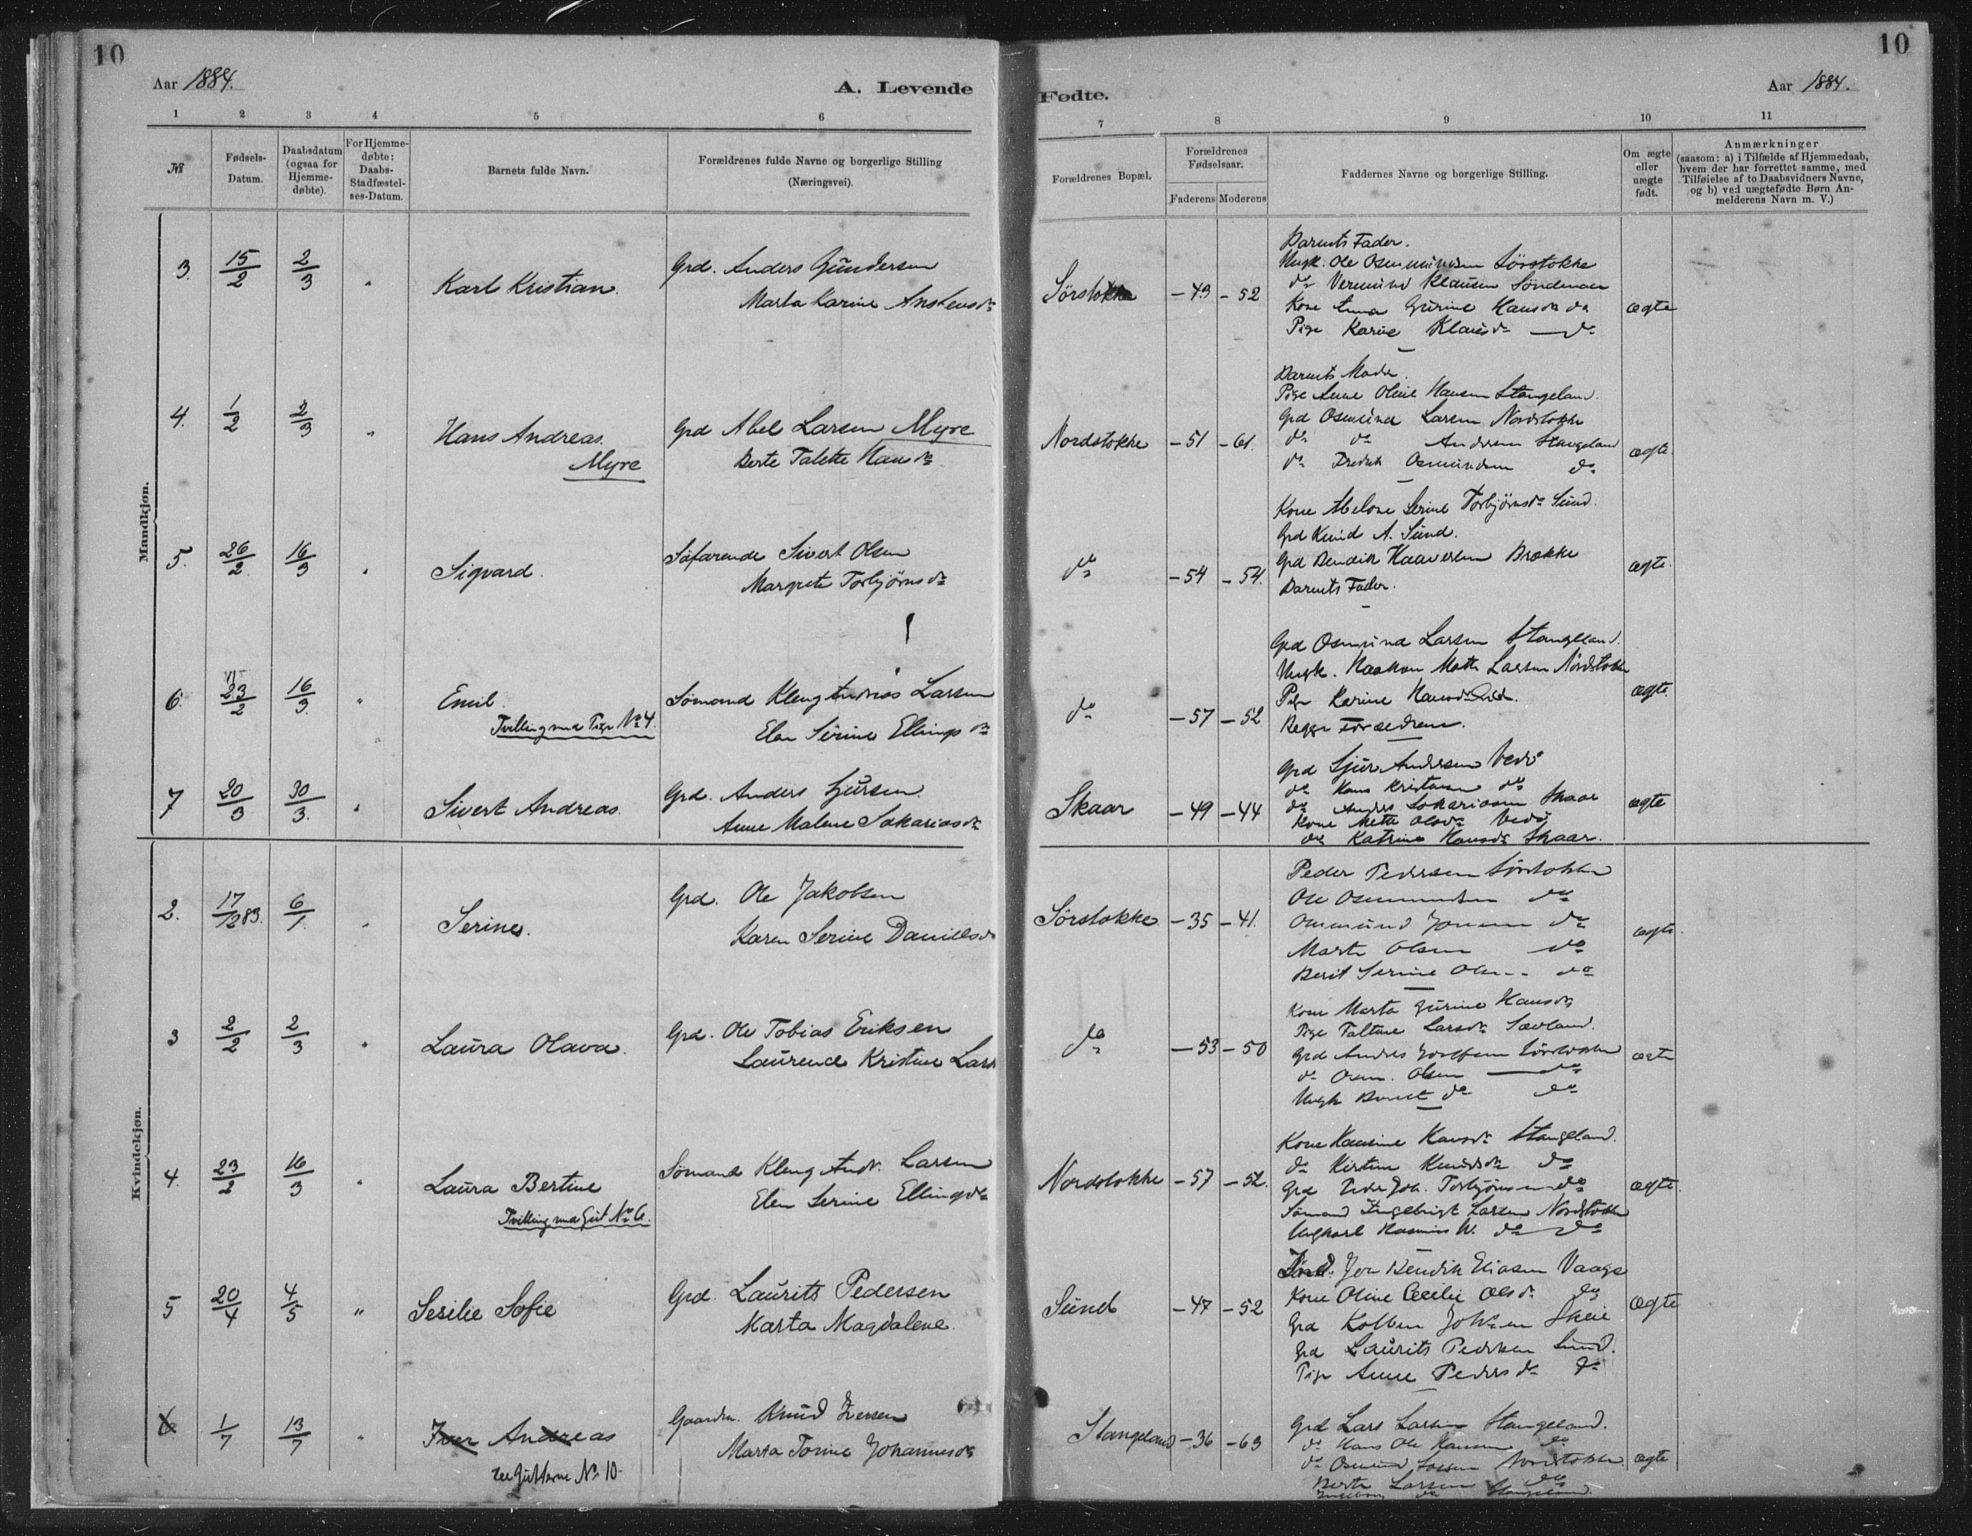 10
Aar 1884.
A. Levende
1 2 3 4 5 6
№
Fødsels-
Datum.
Daabsdatum
(ogsaa for
Hjemme-
døbte).
For Hjemme-
døbte:
Daabs-
Stadfæstel-
ses-Datum.
Barnets fulde Navn.
Forældrenes fulde Navne og borgerlige Stilling
(Næringsvei).
Mandkjøn.
3. 15/2 2/3 " Karl Kristian. Grd. Anders Gundersen
Marta Karine
4. 1/2 2/3 " Hans Andreas. Grd Abel Larsen Myre
Myre Berte Talette Hansdr
5. 26/2 16/3 " Sigvard. Søfarende Sivert Olsen
Margrete Torbjørnsdr
6. 23/2 16/3 " Emil. Sømand Kleng Andreas Larsen
Tvilling med Pige No 4. Elen Serine Ellingsdr
7 20/3 30/3. " Sivert Andreas. Grd. Anders Gjursen.
Anne Malene Sakariasdr
Kvindekjøn.
2. 17/12 83. 6/1. " Serine. Grd. Ole Jakobsen
Karen Serine Danielsdr
3 2/2 2/3 " Laura Olava. Grd. Ole Tobias Eriksen
Laurence Kristine Larsd
4. 23/2 16/3 " Laura Bertine Sømand Kleng Andr. Larsen
Tvilling med Gut No 6. Elen Serine Ellingsdr
5 20/4 4/5 " Sesilie Sofie Grd. Laurits Pedersen
Marta Magdalene.
6 1/7 13/7 " Iver Andreas Gaardm. Knud Iversen
see Guttene No 10. Marta Torine Johannesdr
10
Fødte.
Aar 1884.
7 8 9 10 11
Forældrenes Bopæl.
Forældrenes
Fødselsaar.
Faderens Moderens
Faddernes Navne og borgerlige Stilling.
Om ægte
eller
uægte
født.
Anmærkninger
(saasom: a) i Tilfælde af Hjemmedaab,
hvem der har forrettet samme, med
Tilføielse af to Daabsvidners Navne,
og b) ved uægtefødte Børn An-
melderens Navn m. V.)
Barnets Fader.
Ungk. Ole Osmundsen Sørstokke
Sørstokke – 49 – 52 do Vermund Klausen
Kone Anna Gurine Hansdr do ægte
Pige Karine Klausdr — do
Barnets Moder.
Pige Anne Oline Hansen Stangeland.
Grd Osmund Larsen Nordstokke
Nordstokke – 51 – 61. do do Andersen Stangeland ægte
do Fredrik Osmundsen do
Kone Serine Torbjørnsdr Sund.
Grd Knud A. Sund.
do – 54 – 54. Grd Bendik Haaversen Brække ægte.
Barnets Fader.
Grd Osmund Larsen Stangeland.
Ungk. Haakon Larsen Nordstokke
do – 57 – 52 Pige Karine Hansdr ægte
Begge Forældrene.
Grd Gjur Andersen Vedø
do Hans Kristensen do
Skaar – 49 – 44 do Anders Sakariasen Skaar ægte
Kone Mette Olsdr Vedø
do Katrine Hansdr Skaar.
Peder Pedersen Sørstokke
Ole Osmundsen do
Sørstokke. – 35 – 41. Osmund do ægte.
Marte Olsen do
Berit Serine do
Kone Marta Gurine Hansdr
Pige Taline Larsdr Sævland.
do – 53 – 50 Grd Anders Sørstokke ægte
do Osm. Olsen — do
Ungk do do
Kone Hansine Hansdr Stangeland.
do Kirstine Knudsdr do
Nordstokke – 57 – 52. Grd Peder Joh. Torbjørnsen do ægte
Sømand Ingebrigt Larsen Nordstokke
Ungkarl Rasmus W. do — do
Jon Bendik Eliasen Vaage
Kone Oline Cecilie Olsdr do
Sund – 47 – 52 Grd Kolben Johnsen Skeie ægte
Grd Laurits Pedersen Sund.
Pige Anne Pedersdr do
Grd Lars Larsen Stangeland.
Stangeland – 36 – 63 do Hans Ole Hansen do
do Osmund Larsen Nordstokke. ægte
Berte Larsen do
Ingeborg do Stangeland.